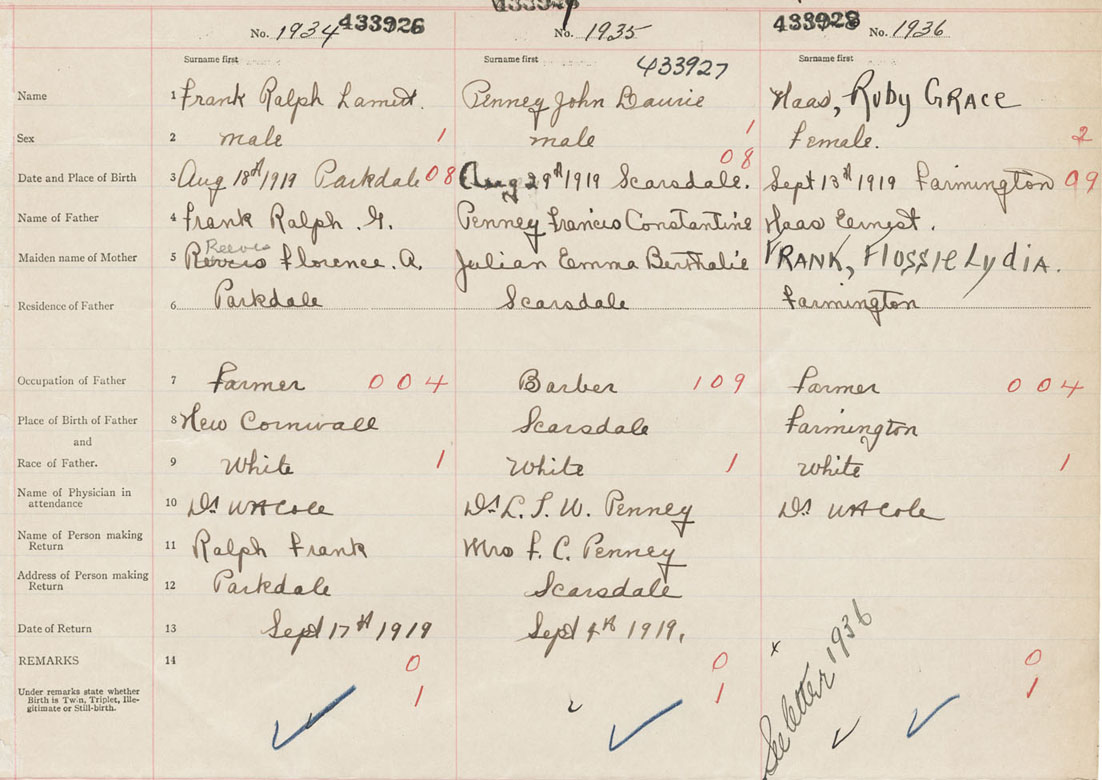 433926
No. 1934 433926 No. 1935 433928 No. 1936
Surname first Surname first Surname first
433927
Name 1 Frank Ralph Lamert. Penney John Laurie Haas, Ruby GRACE
Sex 2 male 1 male 1 Female. 2
Date and Place of Birth 3 Aug 18th 1919 Parkdale 08 Aug 29th 1919 Scarsdale. 08 Sept 13th 1919 Farmington 09
Name of Father 4 Frank Ralph. G. Penney Francis Constantine Haas Ernest.
Reeves
Maiden name of Mother 5 Florence. A. Julian Emma Berthalie FRANK, Flossie Lydia.
Residence of Father 6 Parkdale Scarsdale Farmington
Occupation of Father 7 Farmer 004 Barber 109 Farmer 004
Place of Birth of Father 8 New Cornwall Scarsdale Farmington
and
Race of Father. 9 White 1 White 1 White 1
Name of Physician in
attendance 10 Dr WH Cole Dr L. S. W. Penney Dr WH Cole
Name of Person making
Return 11 Ralph Frank Mrs F. C. Penney
Address of Person making
Return 12 Parkdale Scarsdale
Date of Return 13 Sept 17th 1919 Sept 4th 1919. x
REMARKS 14 0 0 0
Under remarks state whether
Birth is Twin, Triplet, Ille-
gitimate or Still-birth. 1 1 1
See letter 1936